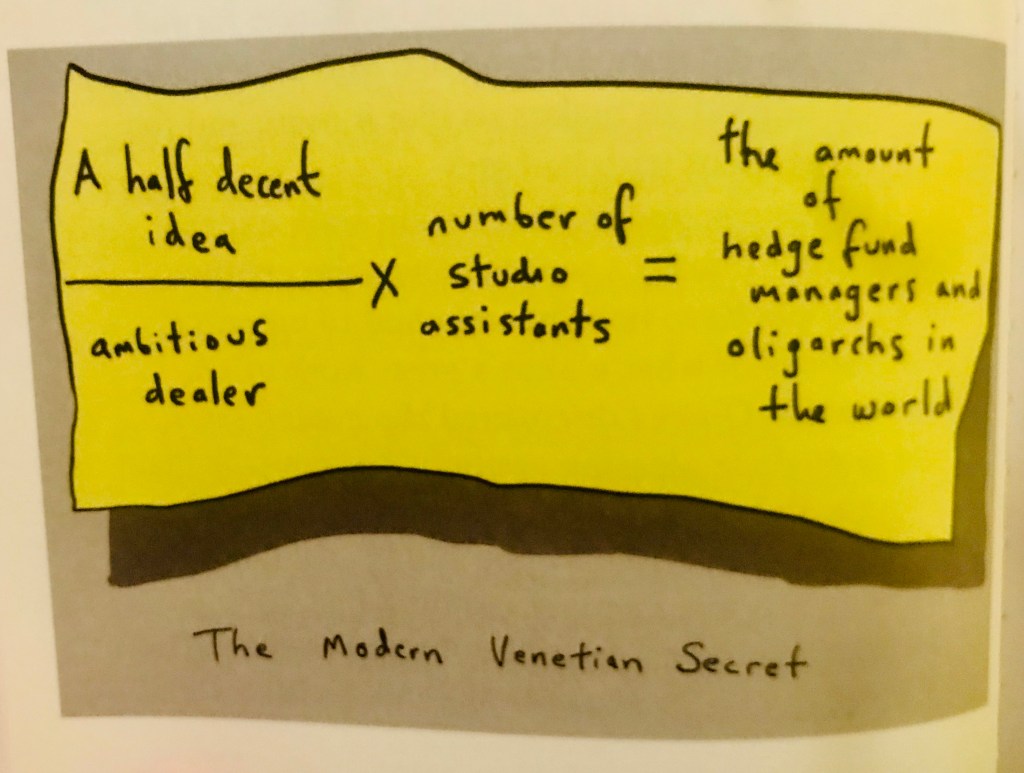 A half decent
idea
ambitious
dealer
X
number of
studio
assistants
=
the amount
of
hedge fund
managers and
oligarchs in
the world
The Modern Venetian Secret